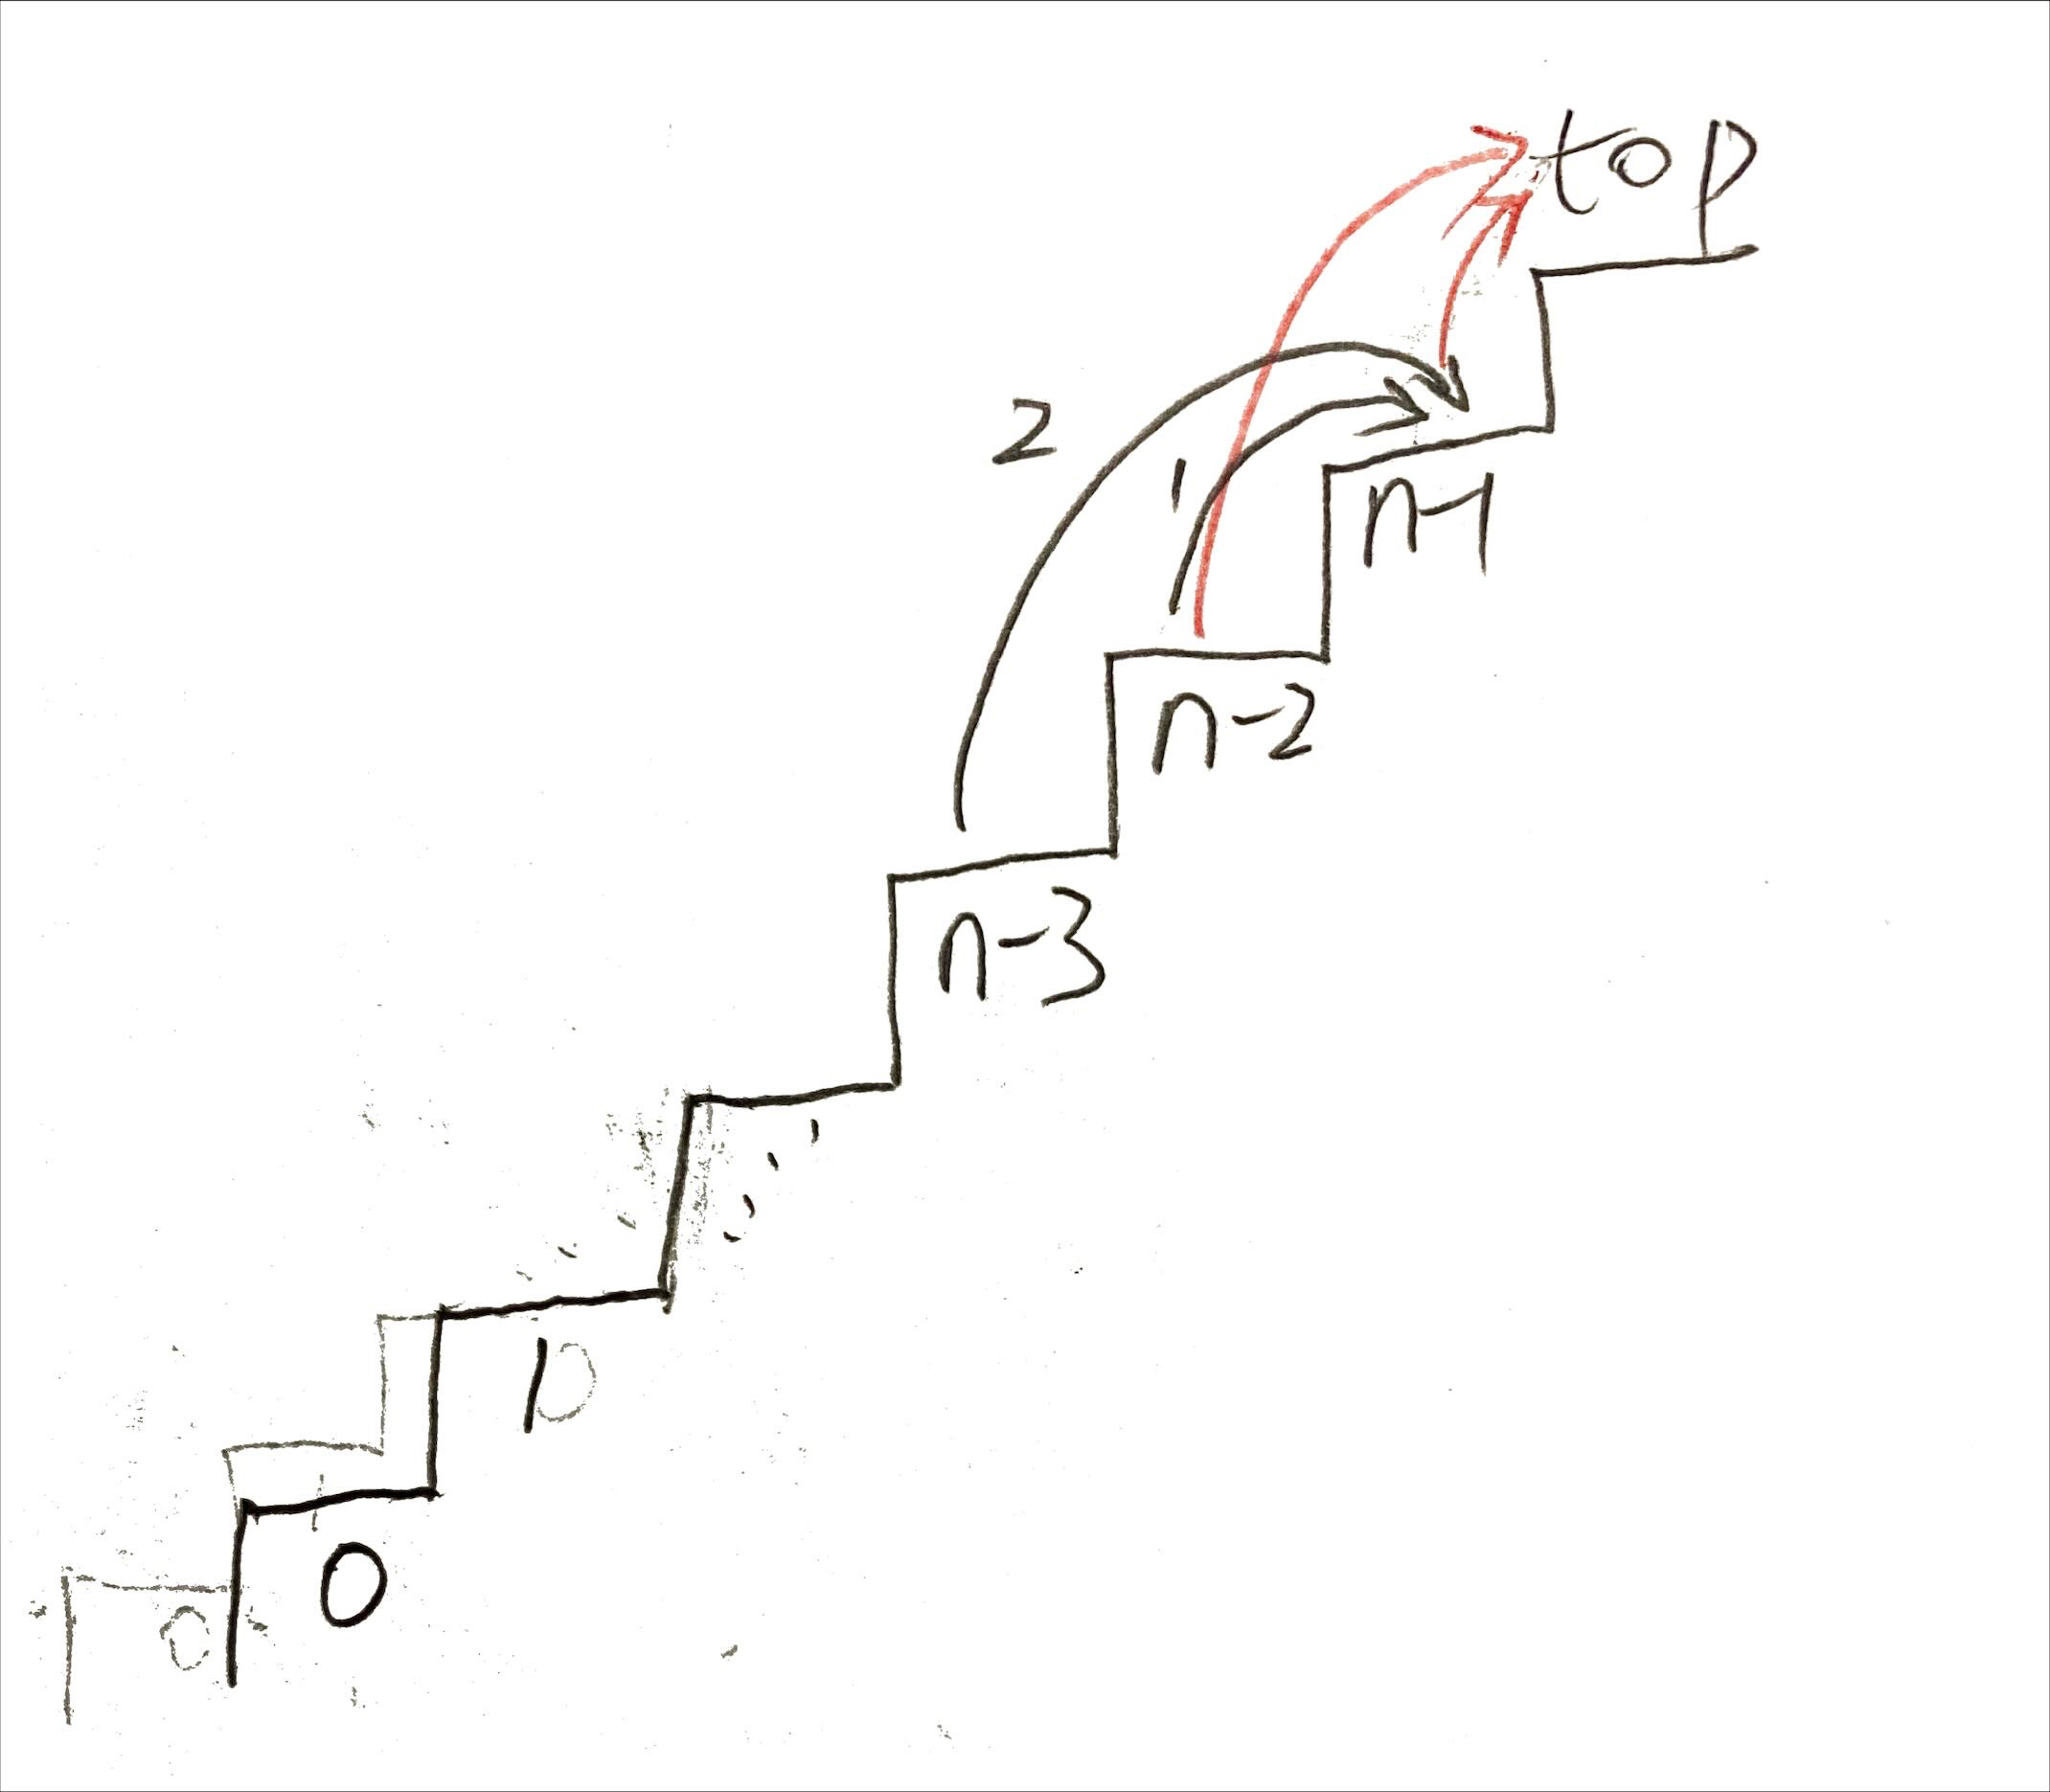 top
2
1
n-1
n-2
n-3
1
0
0